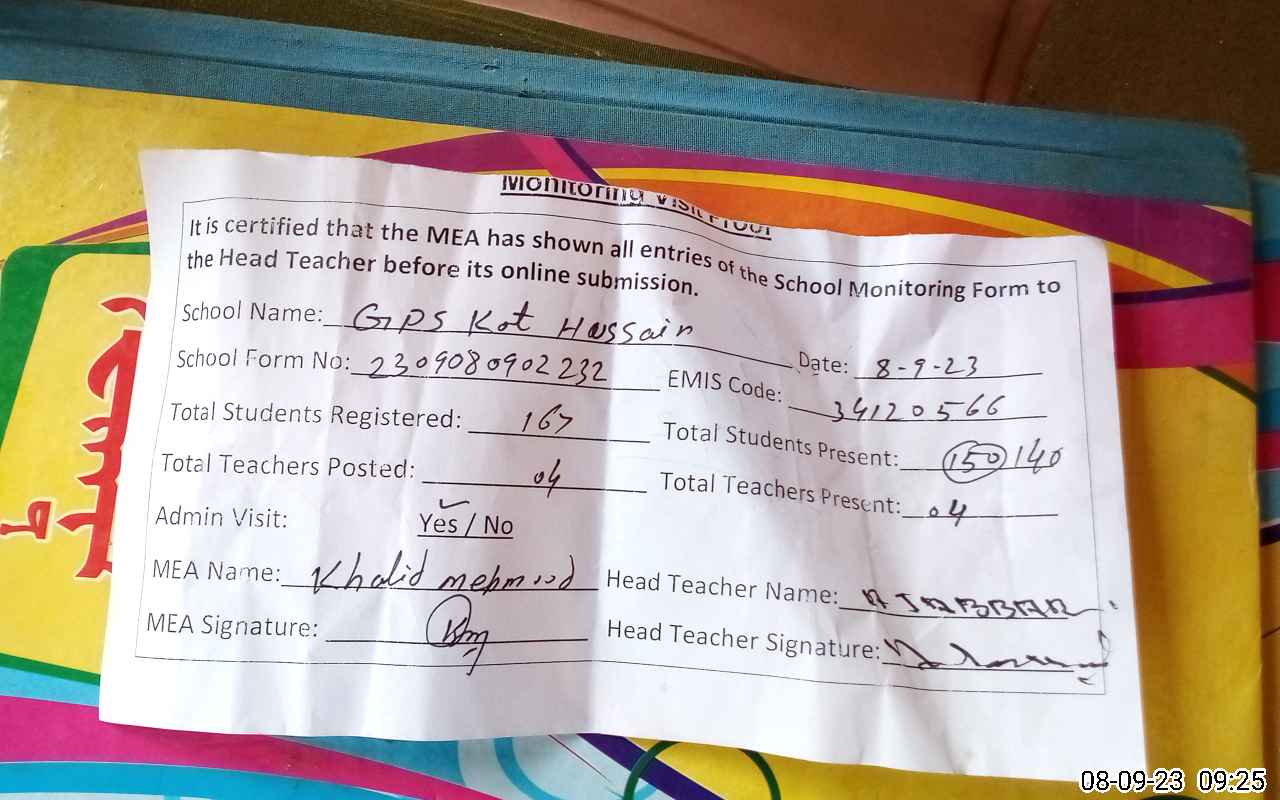 Monitoring Visit Proof
It is certified that the MEA has shown all entries of the School Monitoring Form to
the Head Teacher before its online submission.
School Name: GPS Kot Hussain
Date: 8-9-23
School Form No: 2309080902232
EMIS Code: 34120566
Total Students Registered: 167
Total Students Present: 150 140
Total Teachers Posted: 04
Total Teachers Present: 04
Admin Visit: Yes / No
MEA Name: Khalid mehmood
Head Teacher Name: A JABBAR
MEA Signature:
Head Teacher Signature:
08-09-23 09:25